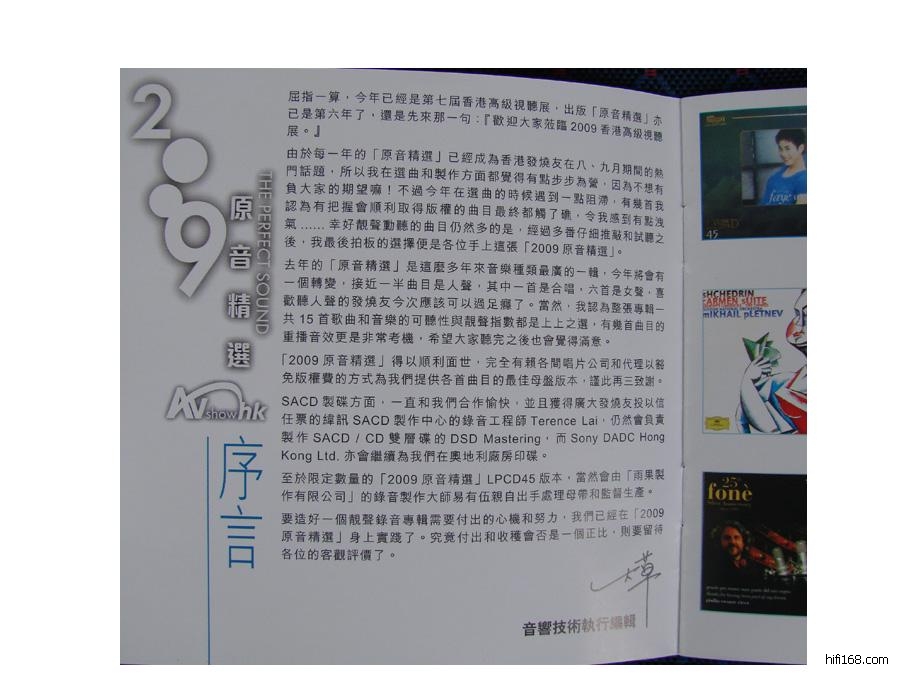 2009
原音精選
THE PERFECT SOUND
AVshow.hk
序言
屈指一算，今年已經是第七屆香港高級視聽展，出版「原音精選」亦
已是第六年了，還是先來那一句：『歡迎大家蒞臨 2009 香港高級視聽
展。』
由於每一年的「原音精選」已經成為香港發燒友在八、九月期間的熱
門話題，所以我在選曲和製作方面都覺得有點步步為營，因為不想有
負大家的期望嘛！不過今年在選曲的時候遇到一點阻滯，有幾首我
認為有把握會順利取得版權的曲目最終都觸了礁，令我感到有點洩
氣 …… 幸好靚聲動聽的曲目仍然多的是，經過多番仔細推敲和試聽之
後，我最後拍板的選擇便是各位手上這張「2009 原音精選」。
去年的「原音精選」是這麼多年來音樂種類最廣的一輯，今年將會有
一個轉變，接近一半曲目是人聲，其中一首是合唱，六首是女聲，喜
歡聽人聲的發燒友今次應該可以過足癮了。當然，我認為整張專輯一
共 15 首歌曲和音樂的可聽性與靚聲指數都是上上之選，有幾首曲目的
重播音效更是非常考機，希望大家聽完之後也會覺得滿意。
「2009 原音精選」得以順利面世，完全有賴各間唱片公司和代理以豁
免版權費的方式為我們提供各首曲目的最佳母盤版本，謹此再三致謝。
SACD 製碟方面，一直和我們合作愉快，並且獲得廣大發燒友投以信
任票的緯訊 SACD 製作中心的錄音工程師 Terence Lai，仍然會負責
製作 SACD / CD 雙層碟的 DSD Mastering，而 Sony DADC Hong
Kong Ltd. 亦會繼續為我們在奧地利廠房印碟。
至於限定數量的「2009 原音精選」LPCD45 版本，當然會由「雨果製
作有限公司」的錄音製作大師易有伍親自出手處理母帶和監督生產。
要造好一個靚聲錄音專輯需要付出的心機和努力，我們已經在「2009
原音精選」身上實踐了。究竟付出和收穫會否是一個正比，則要留待
各位的客觀評價了。
音響技術執行編輯
faye
45
SHCHEDRIN
CARMEN SUITE
MIKHAIL PLETNEV
25
fonè
hifi168.com